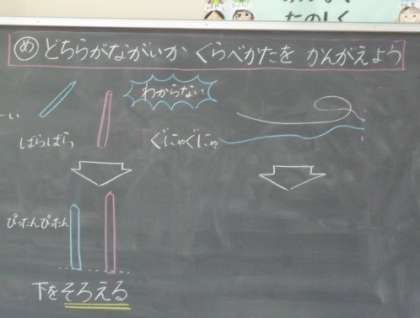 たのしく
め どちらがながいか くらべかたを かんがえよう
わからない
ばらばら
ぐにゃぐにゃ
ぴったんぴったん
下をそろえる